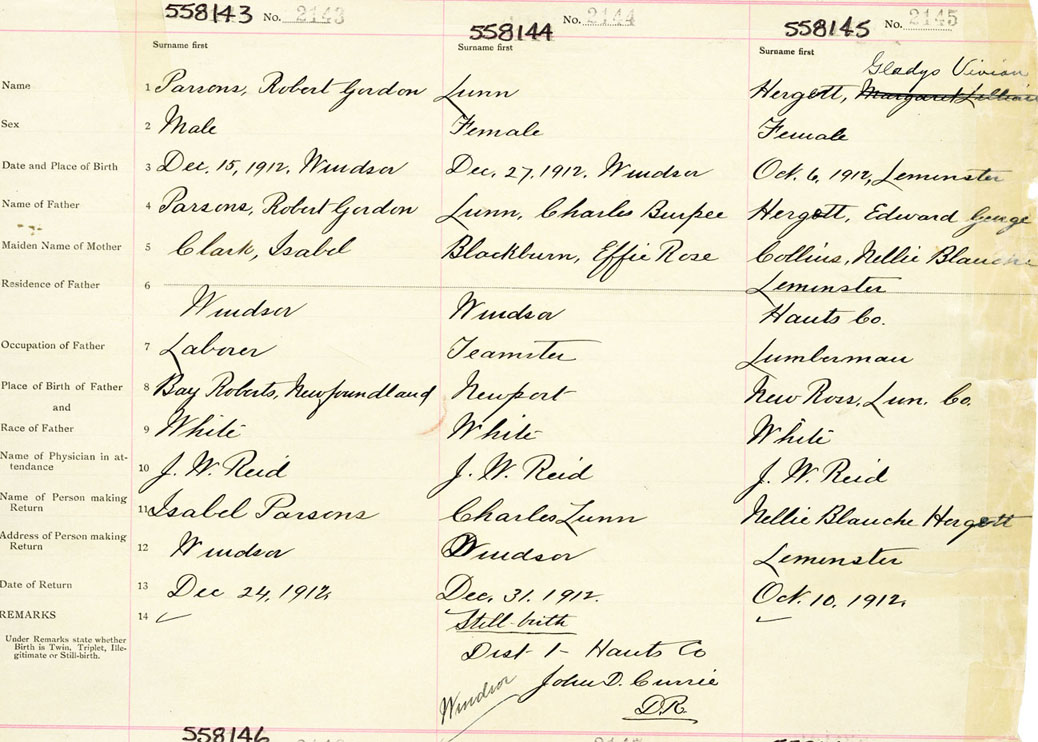 558143 No. 2143
558144 No. 2144
558145 No. 2145
Surname first Surname first Surname first
Gladys Vivian
Name 1 Parsons, Robert Gordon Lunn Hergott, Margaret Lillian
Sex 2 Male Female Female
Date and Place of Birth 3 Dec. 15, 1912. Windsor Dec. 27, 1912. Windsor Oct. 6, 1912, Leminster
Name of Father 4 Parsons, Robert Gordon Lunn, Charles Burpee Hergott, Edward George
Maiden Name of Mother 5 Clark, Isabel Blackburn, Effie Rose Collins, Nellie Blanche
Residence of Father 6 Leminster
Windsor Windsor Hants Co.
Occupation of Father 7 Laborer Teamster Lumberman
Place of Birth of Father 8 Bay Roberts, Newfoundland Newport New Ross, Lun. Co.
and
Race of Father 9 White White White
Name of Physician in at-
tendance 10 J. W. Reid J. W. Reid J. W. Reid
Name of Person making
Return 11 Isabel Parsons Charles Lunn Nellie Blanche Hergott
Address of Person making
Return 12 Windsor Windsor Leminster
Date of Return 13 Dec 24, 1912. Dec. 31. 1912. Oct. 10. 1912.
REMARKS 14 Still-birth
Under Remarks state whether
Birth is Twin, Triplet, Ille-
gitimate or Still-birth.
Dist 1 - Hants Co
Windsor John D. Currie
D.R.
558146